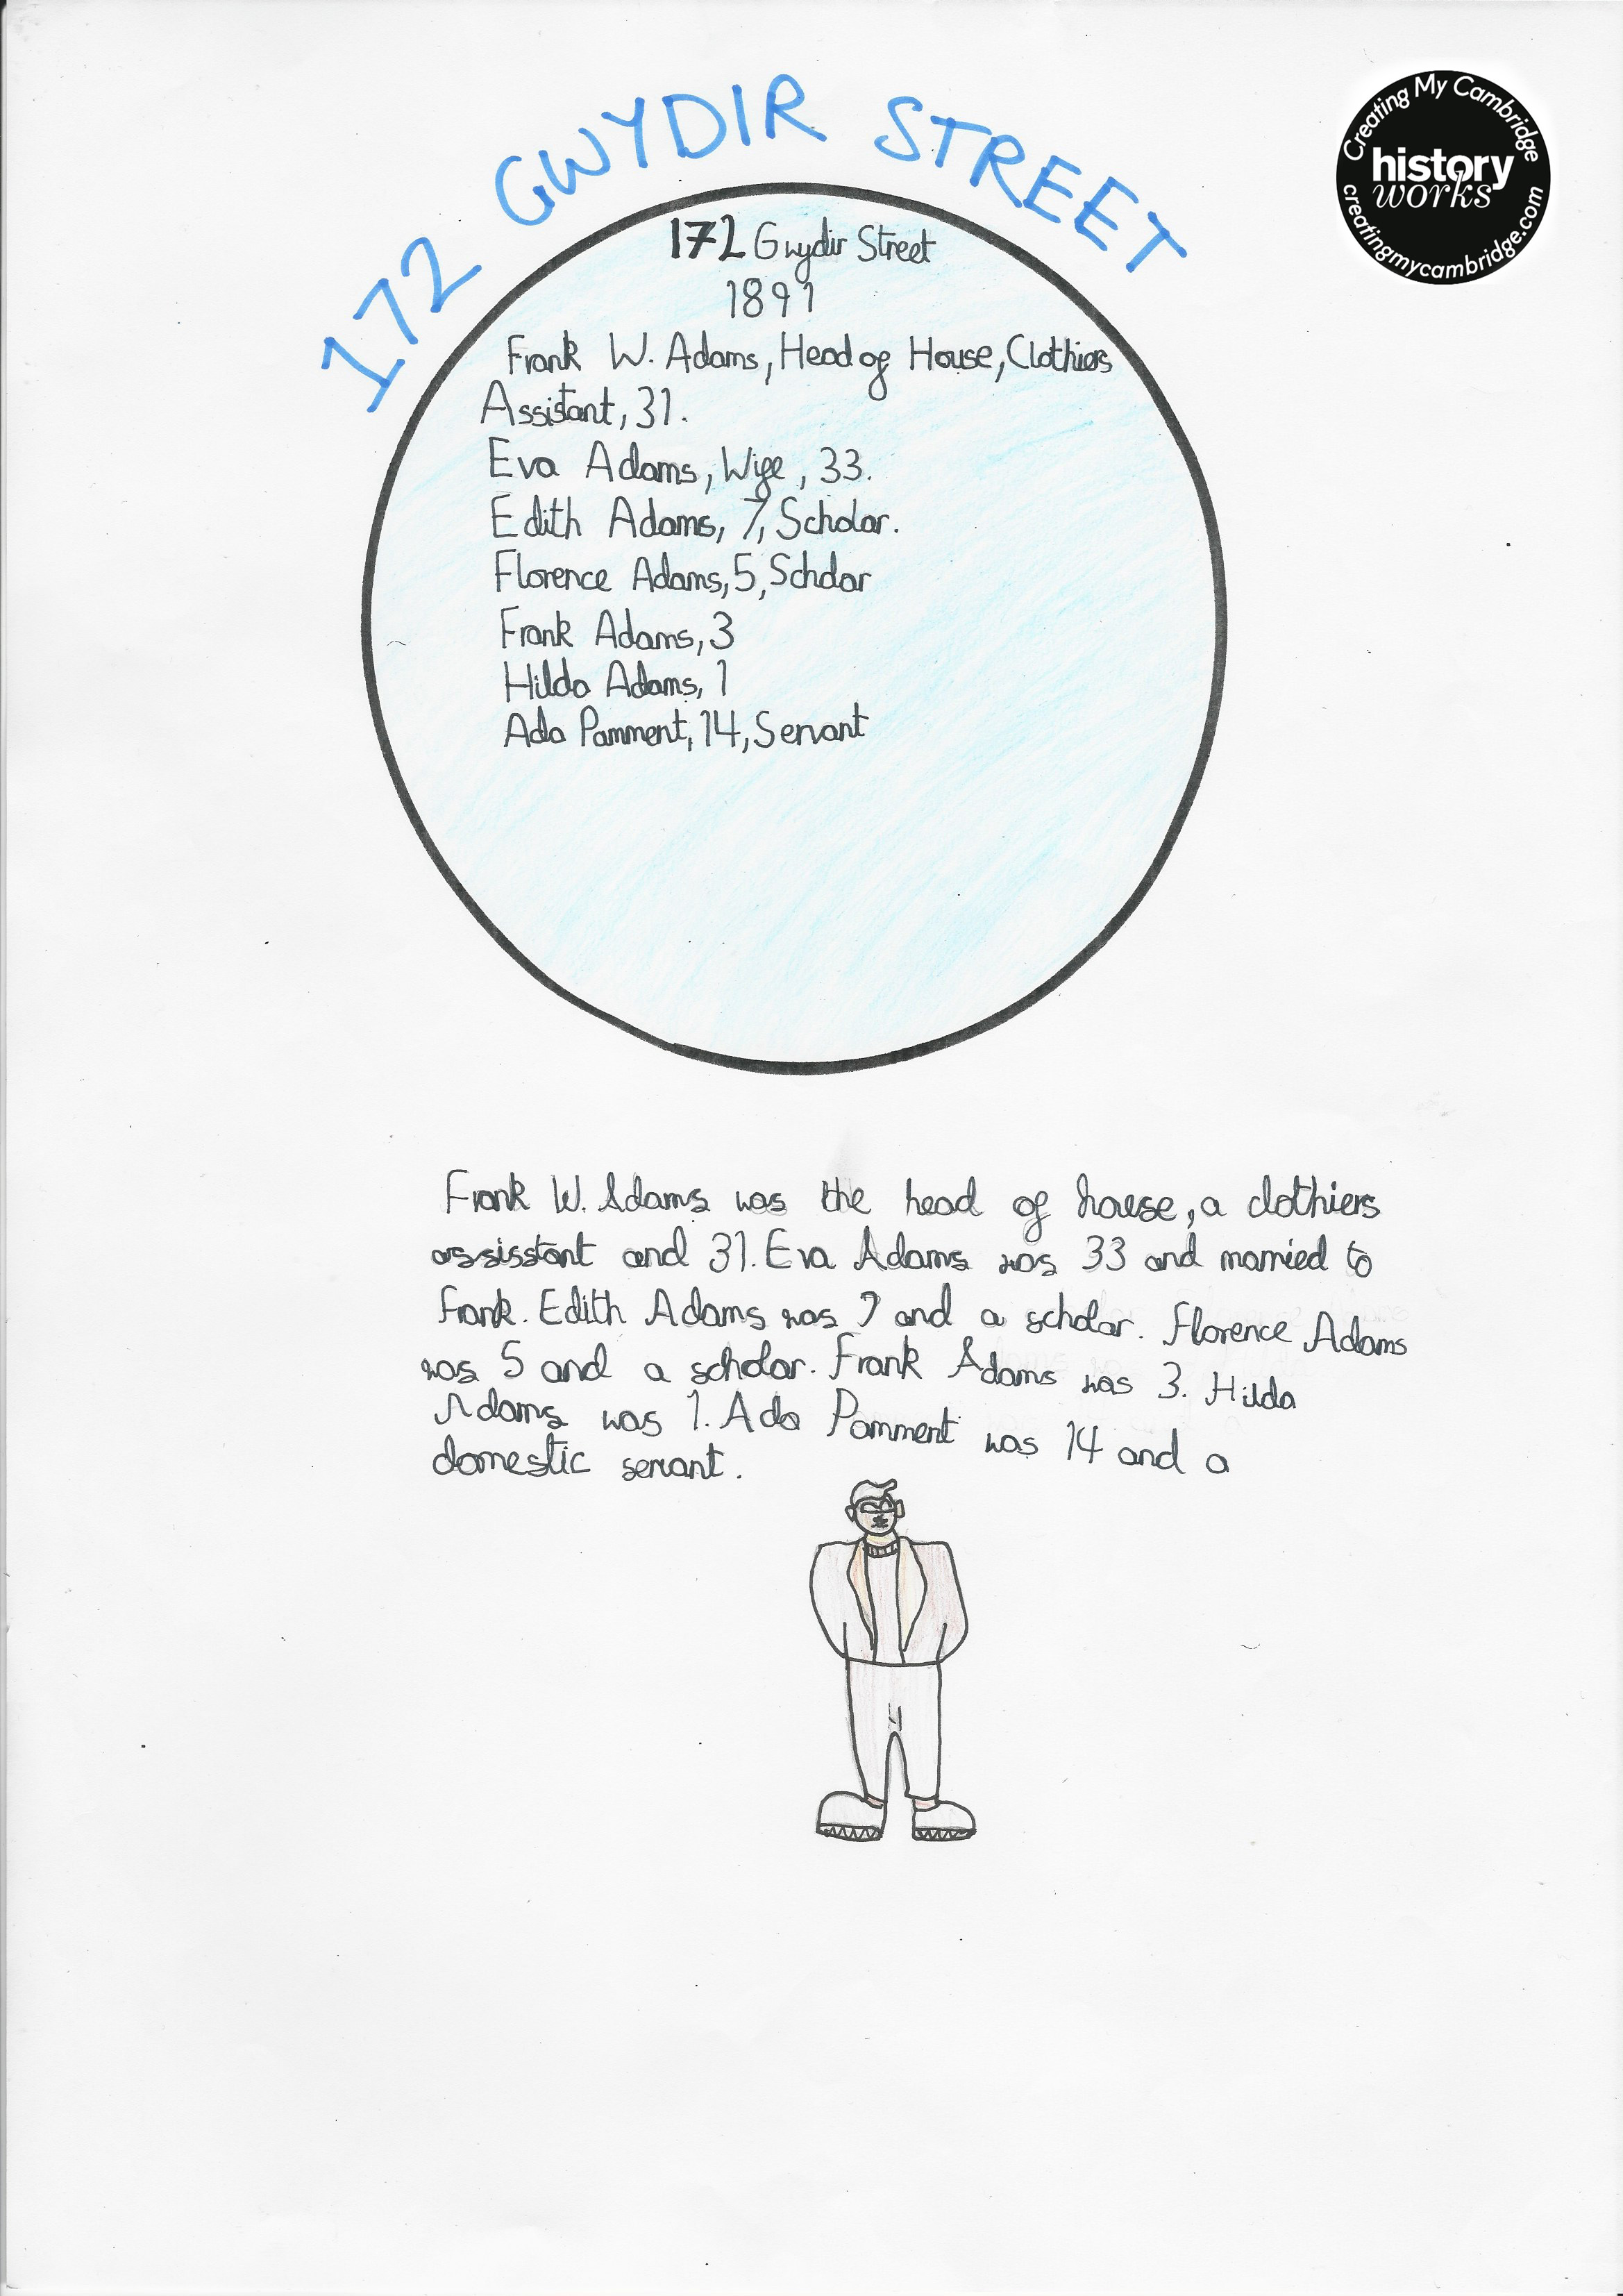 172 GWYDIR STREET
Creating My Cambridge
history
works
creatingmycambridge.com
172 Gwydir Street
1891
Frank W. Adams, Head of House, Clothiers
Assistant, 31.
Eva Adams, Wife, 33.
Edith Adams, 7, Scholar.
Florence Adams, 5, Scholar
Frank Adams, 3
Hilda Adams, 1
Ada Pamment, 14, Servant
Frank W. Adams was the head of house, a clothiers
assisstant and 31. Eva Adams was 33 and married to
Frank. Edith Adams was 7 and a scholar. Florence Adams
was 5 and a scholar. Frank Adams was 3. Hilda
Adams was 1. Ada Pamment was 14 and a
domestic servant.